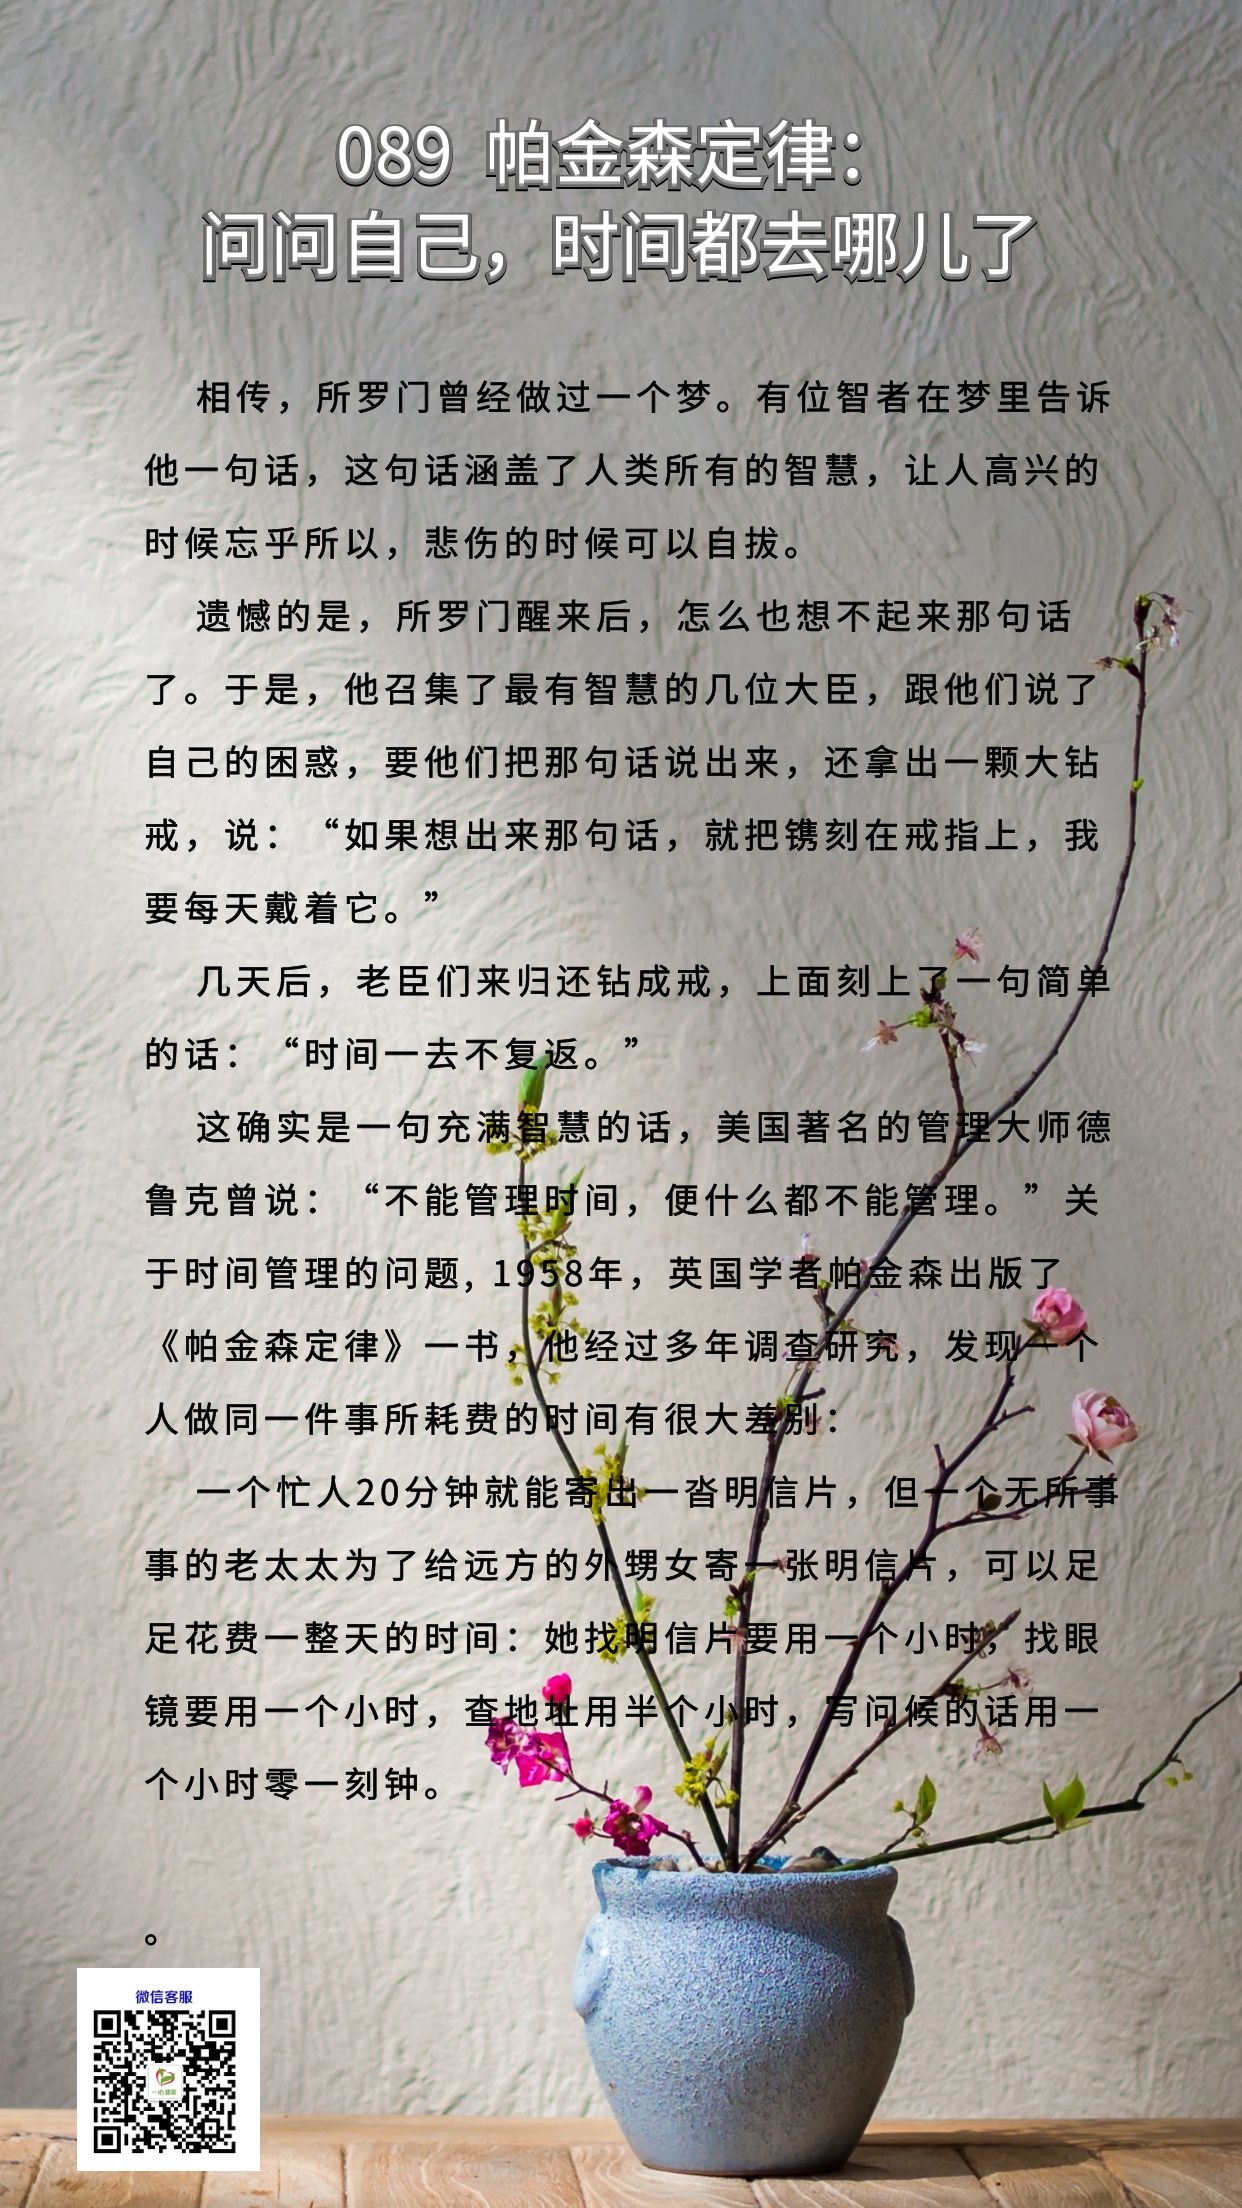 089 帕金森定律：
问问自己，时间都去哪儿了
相传，所罗门曾经做过一个梦。有位智者在梦里告诉
他一句话，这句话涵盖了人类所有的智慧，让人高兴的
时候忘乎所以，悲伤的时候可以自拔。
遗憾的是，所罗门醒来后，怎么也想不起来那句话
了。于是，他召集了最有智慧的几位大臣，跟他们说了
自己的困惑，要他们把那句话说出来，还拿出一颗大钻
戒，说：“如果想出来那句话，就把镌刻在戒指上，我
要每天戴着它。”
几天后，老臣们来归还钻成戒，上面刻上了一句简单
的话：“时间一去不复返。”
这确实是一句充满智慧的话，美国著名的管理大师德
鲁克曾说：“不能管理时间，便什么都不能管理。”关
于时间管理的问题, 1958年，英国学者帕金森出版了
《帕金森定律》一书，他经过多年调查研究，发现一个
人做同一件事所耗费的时间有很大差别：
一个忙人20分钟就能寄出一沓明信片，但一个无所事
事的老太太为了给远方的外甥女寄一张明信片，可以足
足花费一整天的时间：她找明信片要用一个小时，找眼
镜要用一个小时，查地址用半个小时，写问候的话用一
个小时零一刻钟。
。
微信客服
一心健康